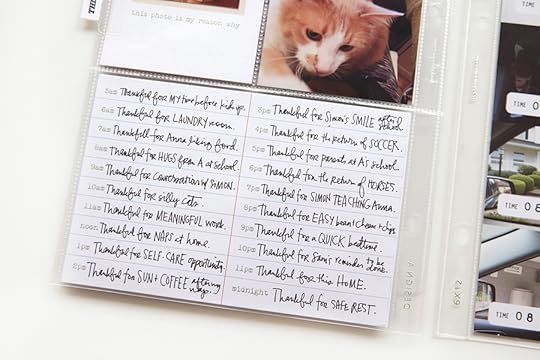 this photo is my reason why
5am Thankful for MY time before kids up.
6am Thankful for LAUNDRY room.
7am Thankfull for Anna liking food.
8am Thankful for HUGS from A at school.
9am Thankful for conversation w/ SIMON.
10am Thankful for silly cats.
11am Thankful for MEANINGFUL work.
noon Thankful for NAPS at home.
1pm Thankful for SELF-CARE opportunity.
2pm Thankful for SUN + COFFEE after my nap.
3pm Thankful for Simon's SMILE after school.
4pm Thankful for the return of SOCCER.
5pm Thankful for parents at A's school.
6pm Thankful for the return of HORSES.
7pm Thankful for SIMON TEACHING Anna.
8pm Thankful for EASY bean + cheese + chips
9pm Thankful for a QUICK bedtime.
10pm Thankful for Sara's reminder to be done.
11pm Thankful for this HOME.
midnight Thankful for SAFE REST.
DESIGN A
6X12
TIME
TIME 08
TIME 08